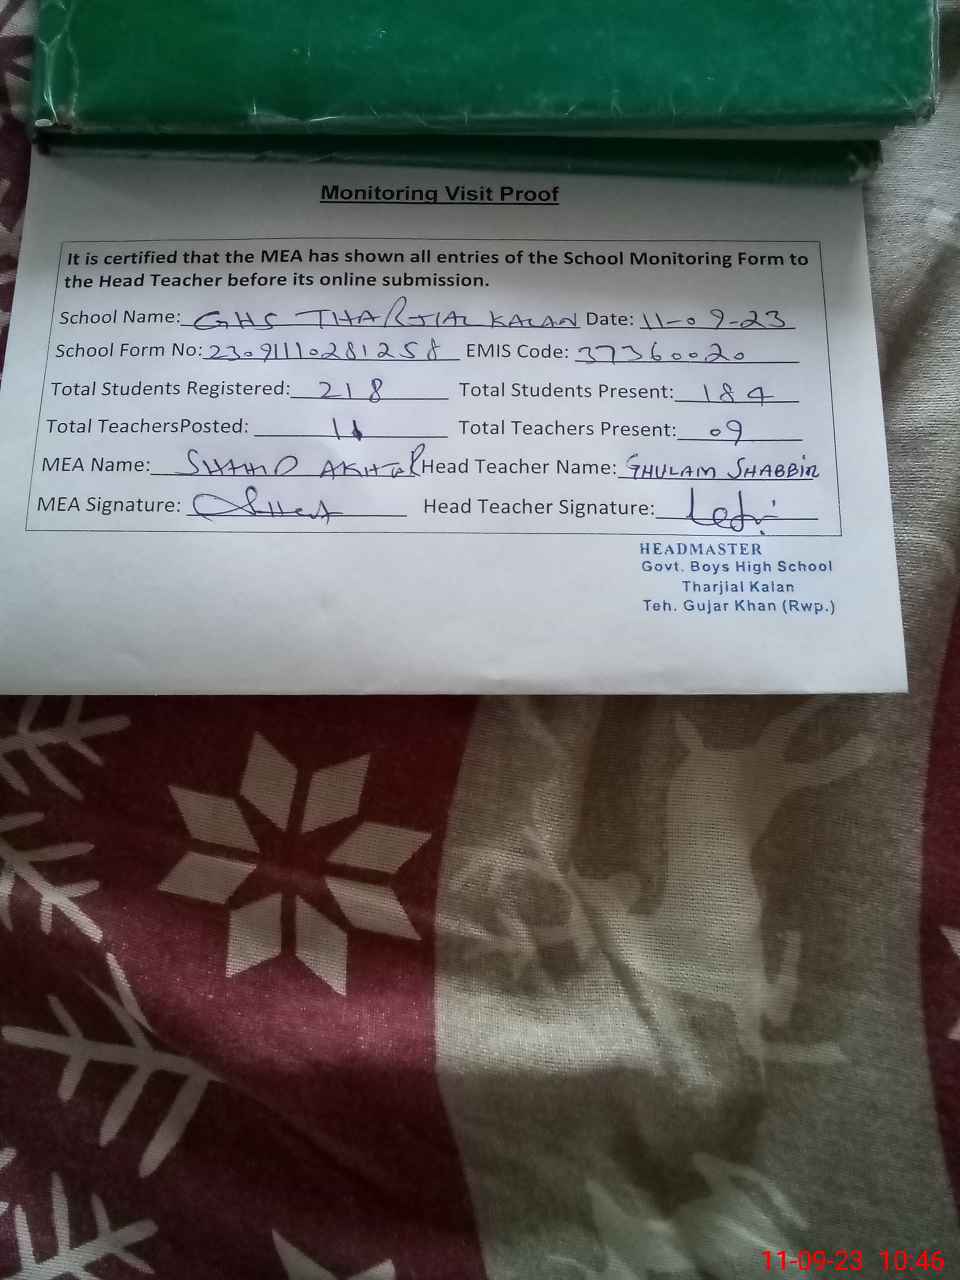 Monitoring Visit Proof
It is certified that the MEA has shown all entries of the School Monitoring Form to
the Head Teacher before its online submission.
School Name: GHS THARJIAL KALAN Date: 11-09-23
School Form No: 2309111028 1258 EMIS Code: 37360020
Total Students Registered: 218 Total Students Present: 184
Total TeachersPosted: 11 Total Teachers Present: 09
MEA Name: SHAHID AKHTAR Head Teacher Name: GHULAM SHABBIR
MEA Signature: Head Teacher Signature:
HEADMASTER
Govt. Boys High School
Tharjial Kalan
Teh. Gujar Khan (Rwp.)
11-09-23 10:46